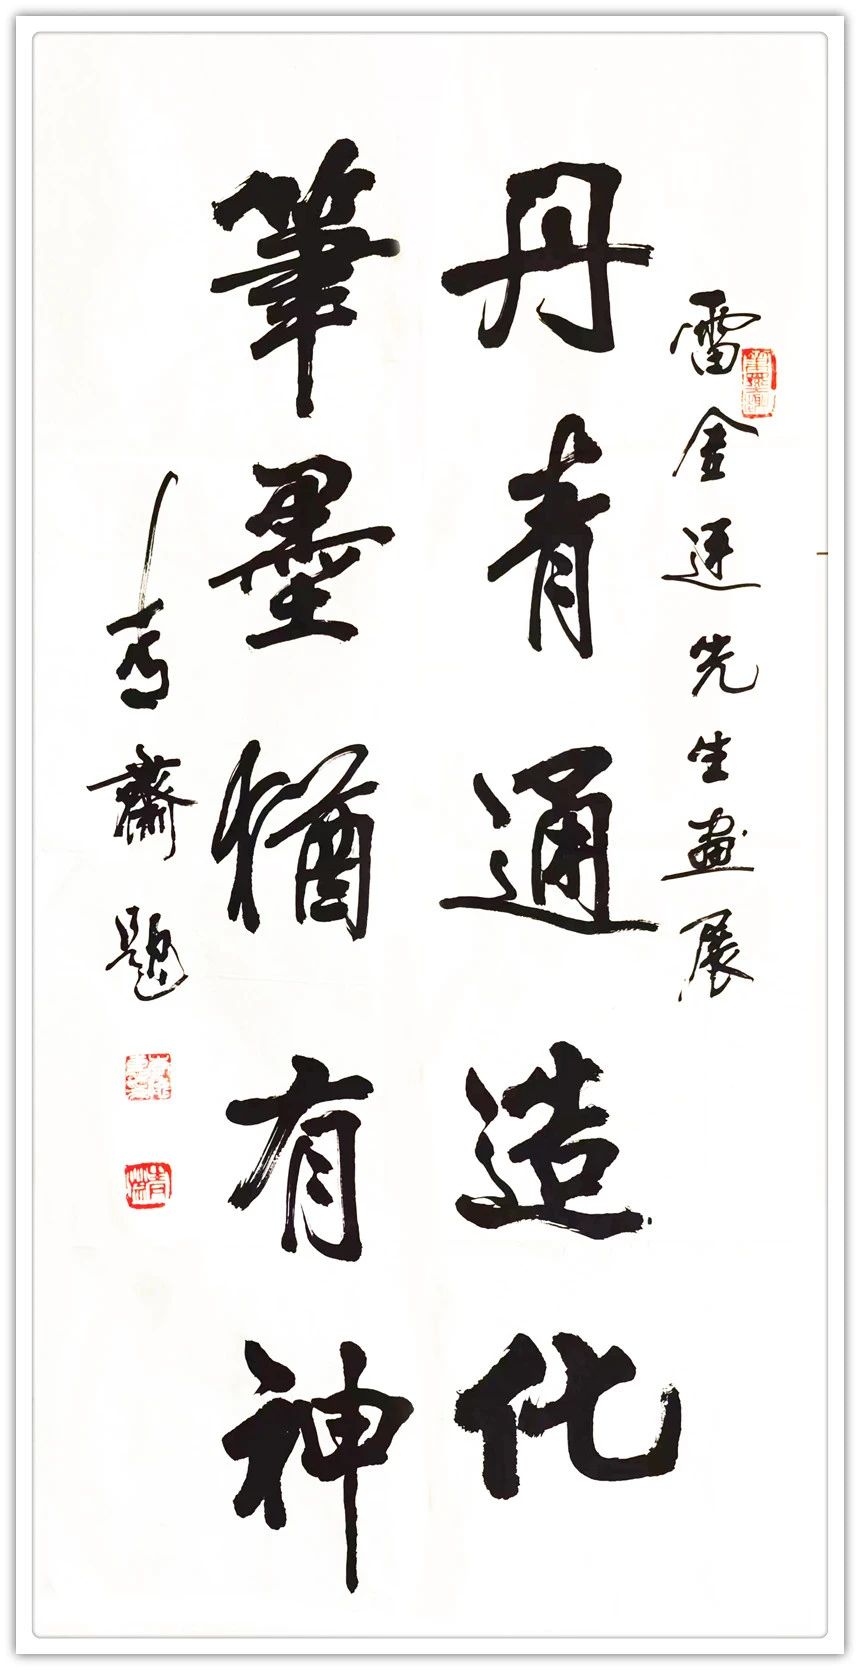 雷金先生畫展
丹青通造化
筆墨猶有神
齋題